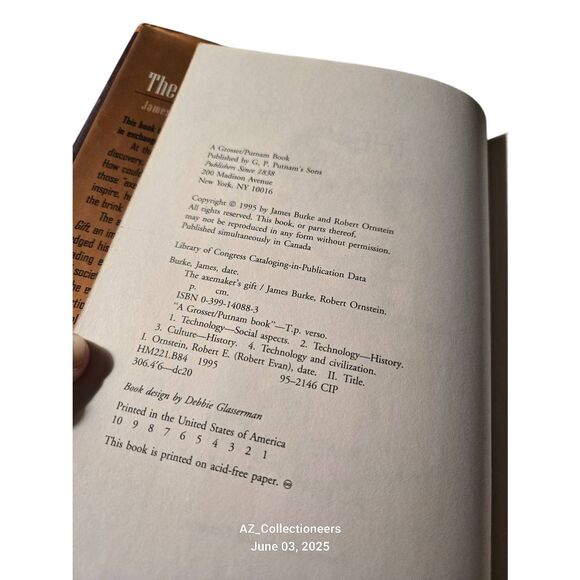 The
James
This book
in exchang
At th
discovery,
How could
those "axe
inspire, h
the brink
The a
Gift, an in
edged his
ading e
societ
The e
A Grosset/Putnam Book
Published by G. P. Putnam's Sons
Publishers Since 1838
200 Madison Avenue
New York, NY 10016
Copyright © 1995 by James Burke and Robert Ornstein
All rights reserved. This book, or parts thereof,
may not be reproduced in any form without permission.
Published simultaneously in Canada
Library of Congress Cataloging-in-Publication Data
Burke, James, date.
The axemaker's gift / James Burke, Robert Ornstein.
p. cm.
ISBN 0-399-14088-3
"A Grosset/Putnam book"—T.p. verso.
1. Technology—Social aspects. 2. Technology—History.
3. Culture—History. 4. Technology and civilization.
I. Ornstein, Robert E. (Robert Evan), date. II. Title.
HM221.B84 1995
306.4'6—dc20 95-2146 CIP
Book design by Debbie Glasserman
Printed in the United States of America
10 9 8 7 6 5 4 3 2 1
This book is printed on acid-free paper. ♾
AZ_Collectioneers
June 03, 2025